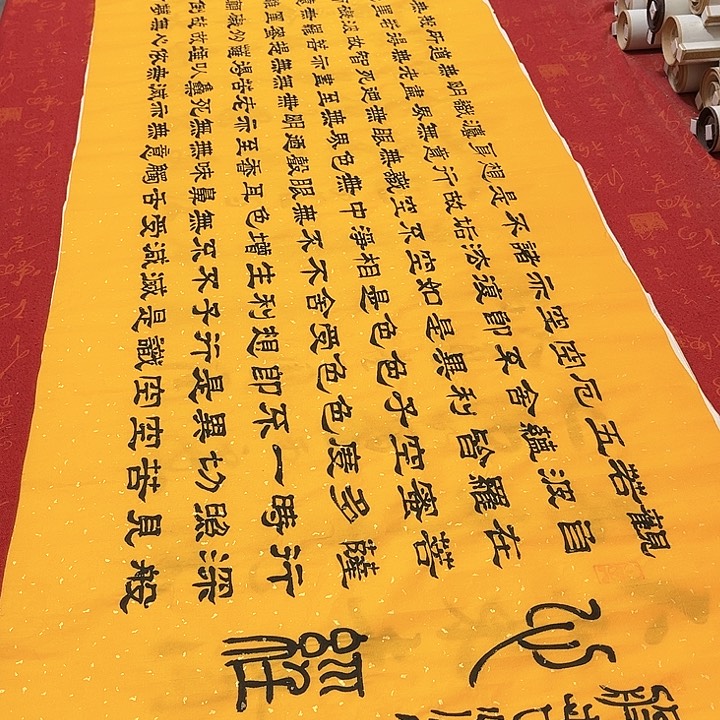 觀自在菩薩行深般
若波羅蜜多時照見
五蘊皆空度一切苦
厄舍利子色不異空
空不異色色即是空
空即是色受想行識
亦復如是舍利子是
諸法空相不生不滅
不垢不淨不增不減
是故空中無色無受
想行識無眼耳鼻舌
身意無色聲香味觸
法無眼界乃至無意
識界無無明亦無無
明盡乃至無老死亦
無老死盡無苦集滅
道無智亦無得以無
所得故菩提薩埵依